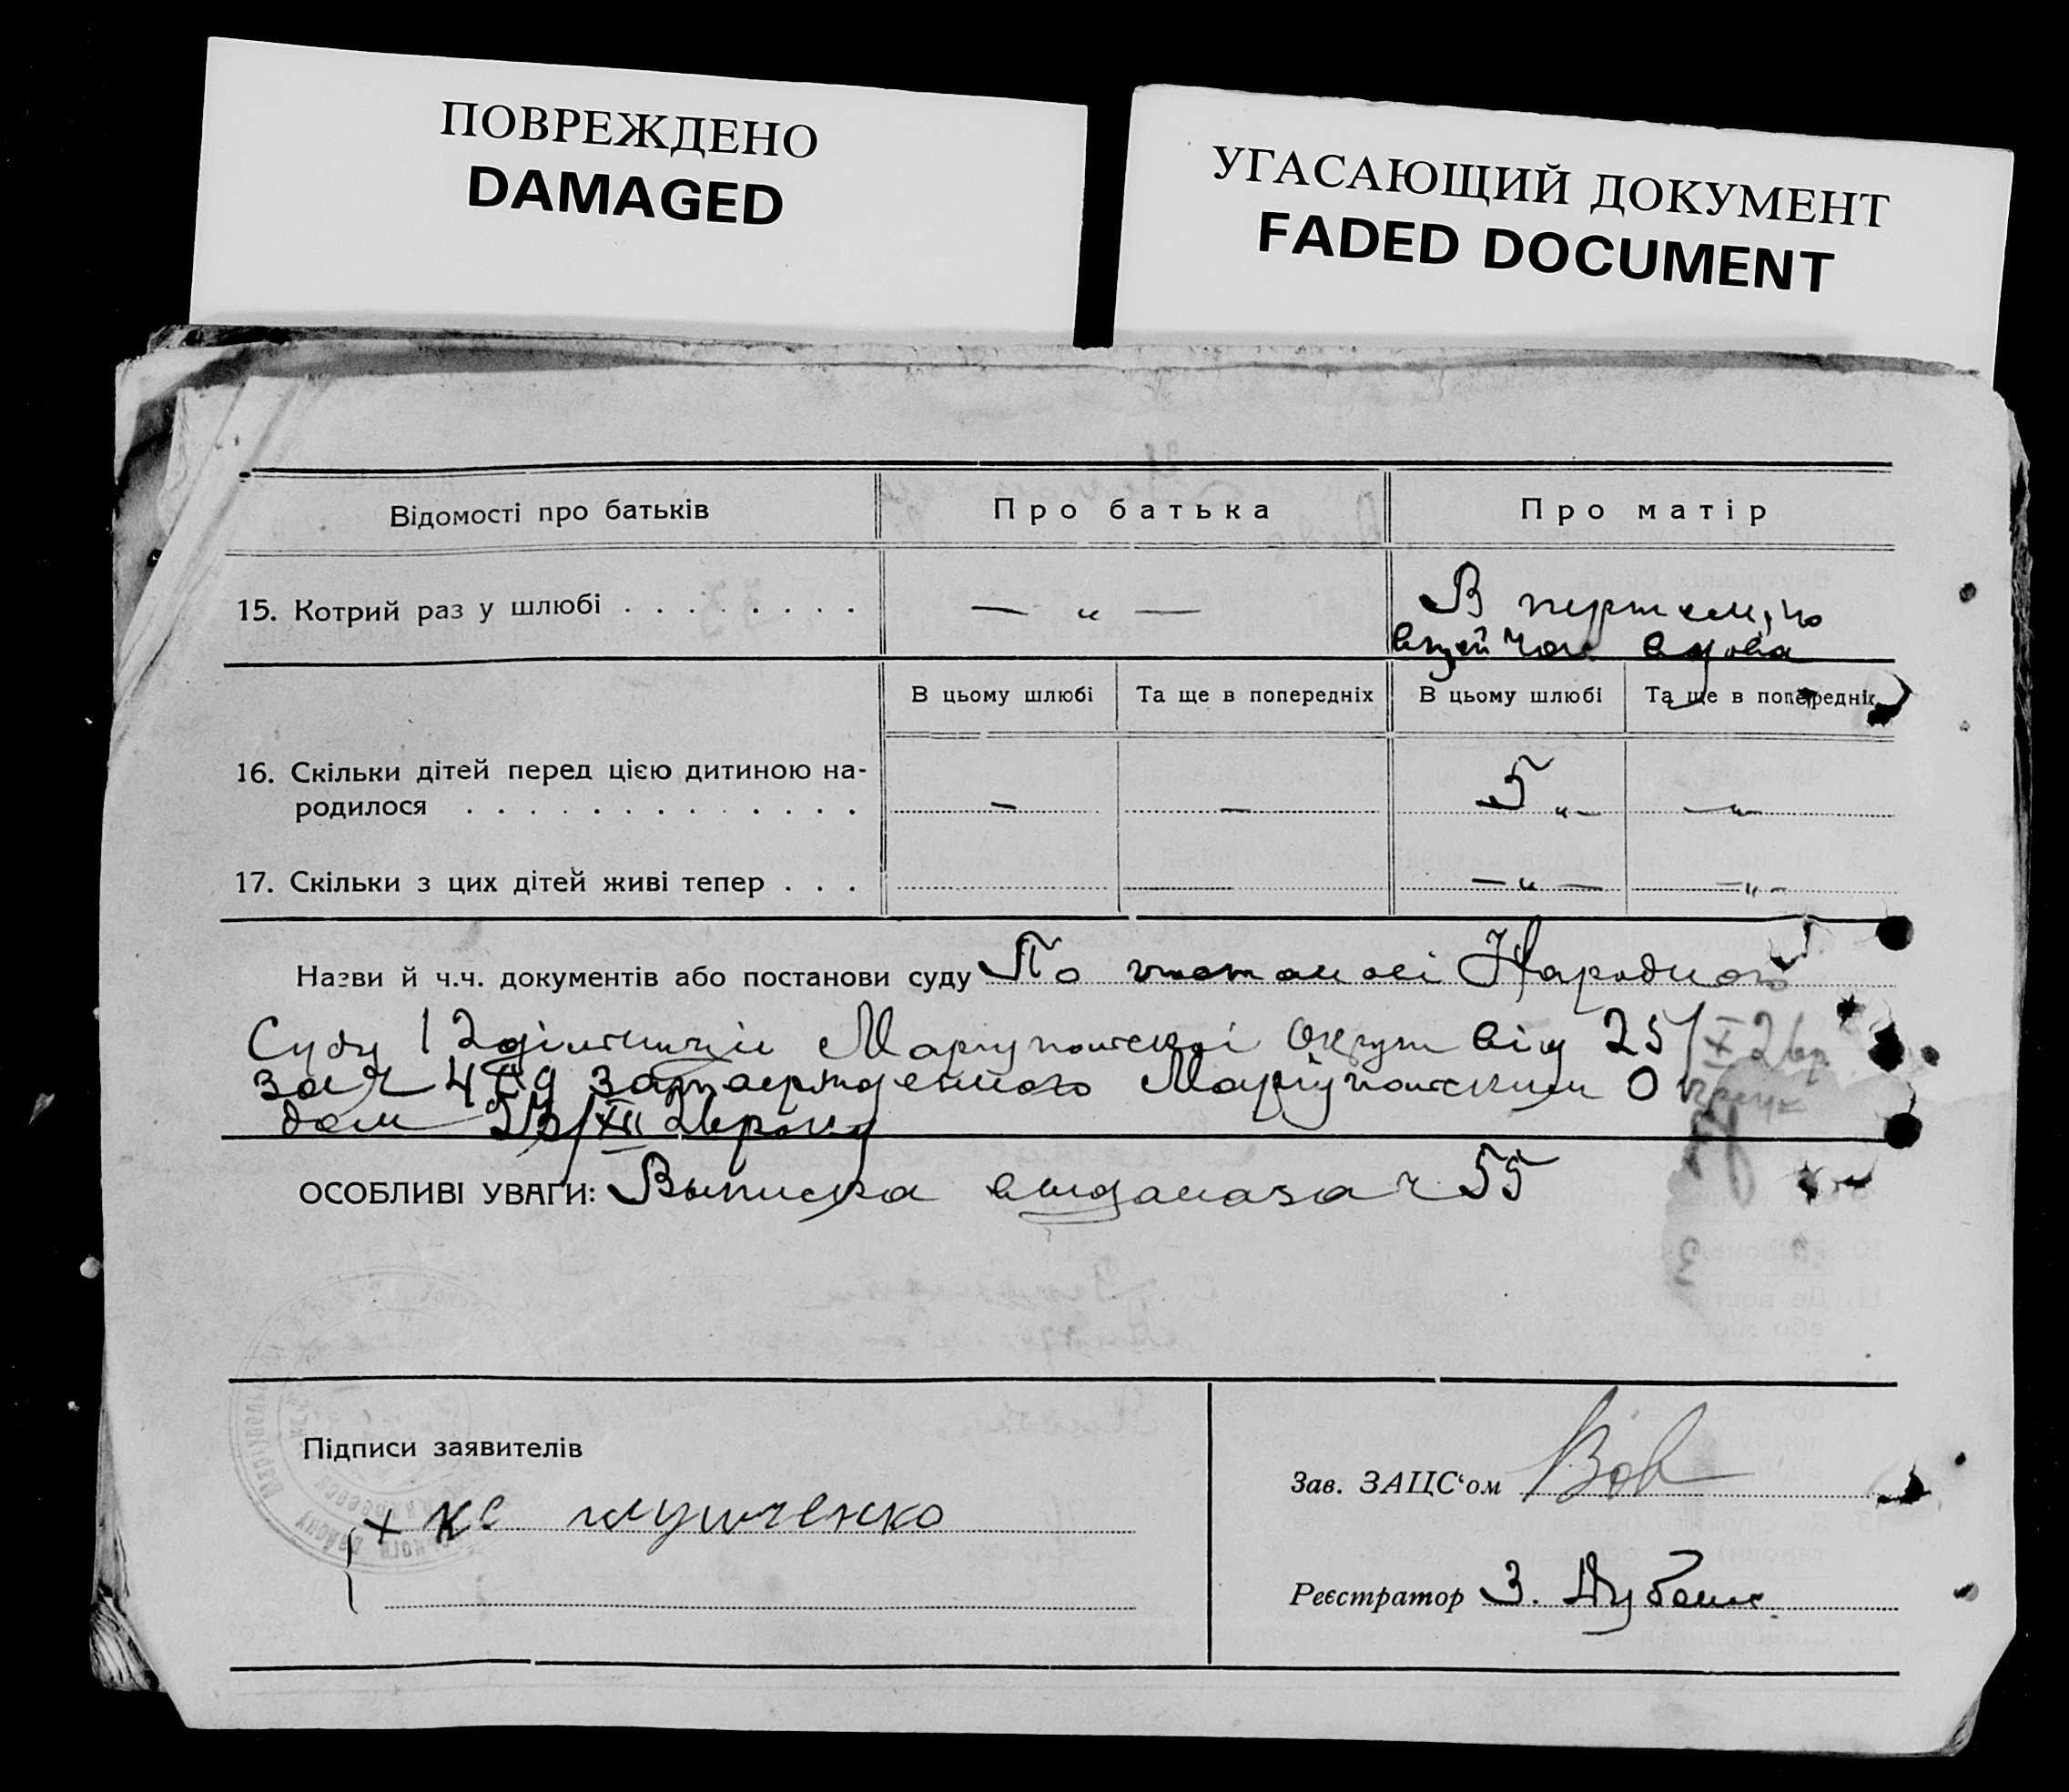 ПОВРЕЖДЕНО
DAMAGED
УГАСАЮЩИЙ ДОКУМЕНТ
FADED DOCUMENT
Відомості про батьків Про батька Про матір
15. Котрий раз у шлюбі . . . . . . . . — „ — В першем, по
вдова
В цьому шлюбі Та ще в попередніх В цьому шлюбі Та ще в попередніх
16. Скільки дітей перед цією дитиною на-
родилося . . . . . . . . . . . . . — — 5 „— —„—
17. Скільки з цих дітей живі тепер . . . —„— —„—
Назви й ч.ч. документів або постанови суду По постанові Народного
Суду 12 дільниці Маріупольскої округи від 25/X 26р
за ч затвержденного Маріупольским Окрсу
дом XII 26 року
ОСОБЛИВІ УВАГИ: Выписка выдана за ч 55
Підписи заявителів
Зав. ЗАЦС‘ом
+ кс глущенко
Реєстратор З.